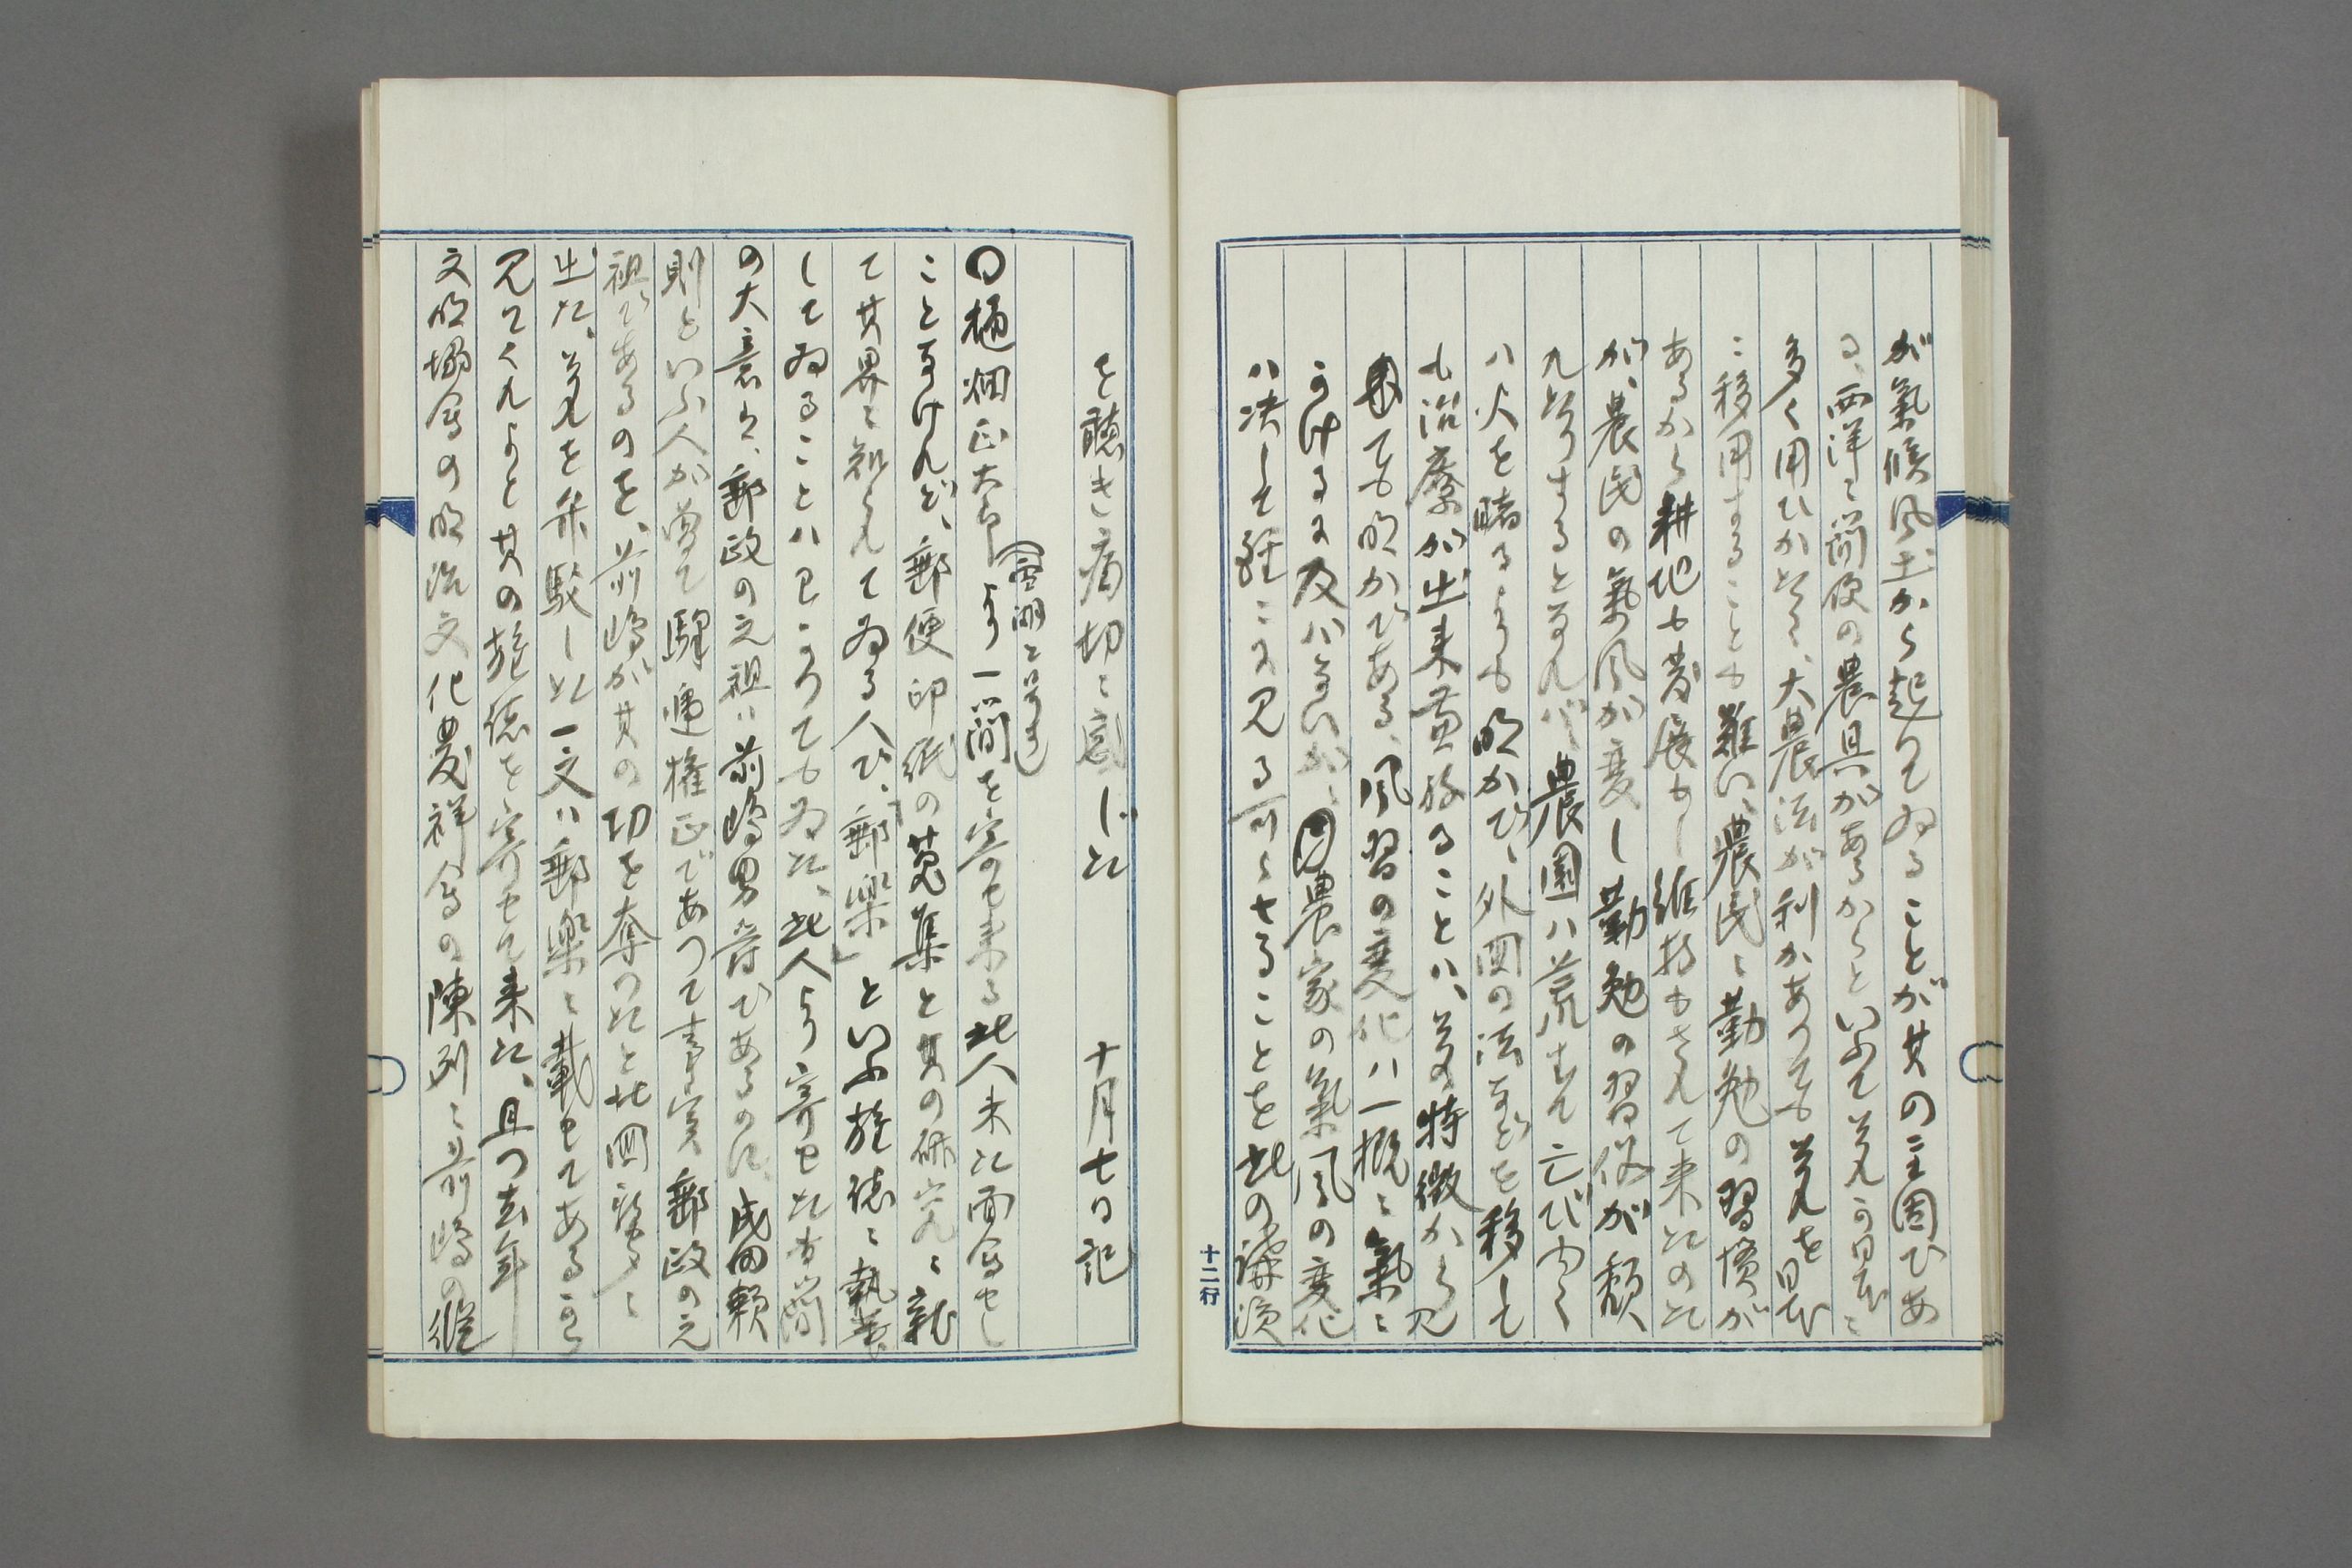 が氣候風土から起りてゐることが其の主因であ
る、西洋に簡便の農具があるからといふて苴れ可日本に
多く用ひからく、大農法が利かありても苴れを日本
に移用することも難い、農民に勤勉の習慣が
あるから耕地も發展もし維持もされて来たのだ
が、農民の氣風が変し勤勉の習俗が頽
れ するとなれバ、農園ハ荒れて亡び行く
ハ火を睹るよりも明かで、外国の法などを移して
も治療が出来兼ねることハ、其特徴から見
ても明かである、風習の変化ハ一概に氣に
うけるに及ハないが、農家の氣風の変化
ハ决して軽々に見る可らさることを此の講演
十二行
を聽き痛切に感じた 十月七日記
〇樋畑正太郎(雪湖といふ)より一簡を寄せ来る此人未だ面会せし
ことなけれど、郵便印紙の蒐集と其の研究に就
て其界に知られてゐる人で、「郵樂」といふ雜誌に執筆
してゐることハ見ゝつてもゐた、此人より寄せた書簡
の大意ハ、郵政の元祖ハ前嶋男爵であるのに、成田頼
則といふ人が嘗て驛逓権正であつて事実郵政の元
祖であるのを、前嶋が其の功を奪つたと此四 に
出た、苴れを弁駁した一文ハ郵樂に載せてある可ら
見てくれよと其の雜誌を寄せて来た、且つ去年
文明協会の明治文化發祥 の陳列に前嶋の